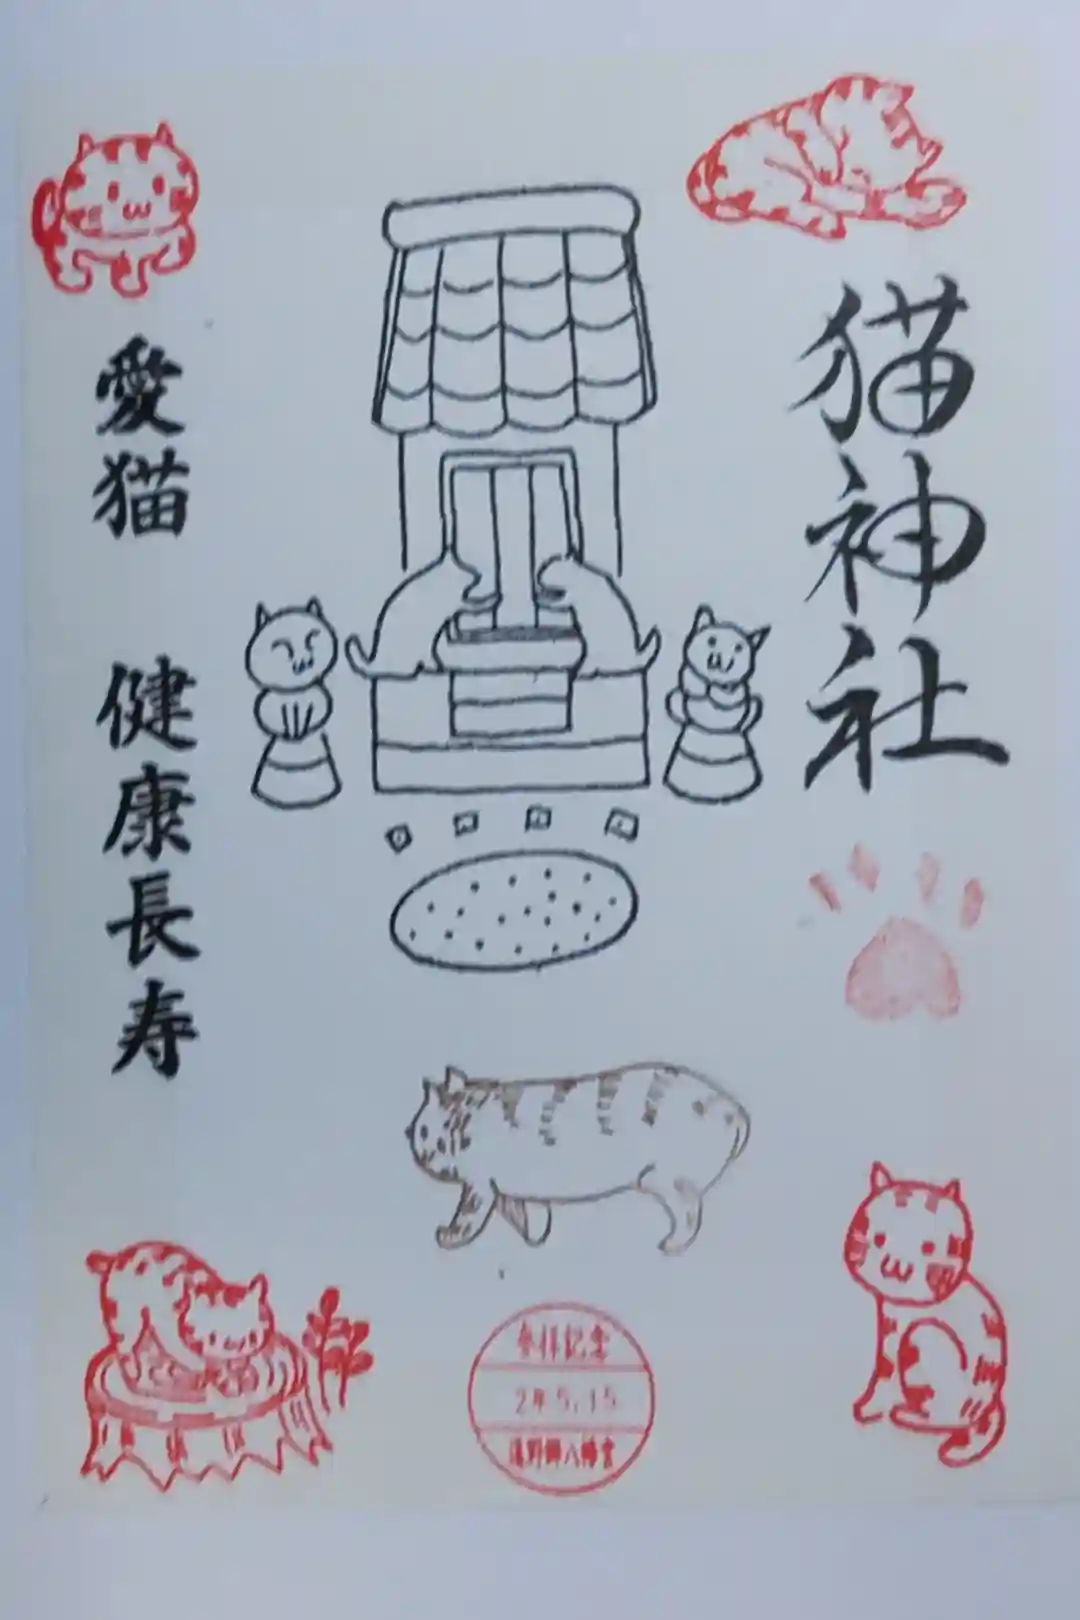 猫神社
愛猫 健康長寿
参拝記念
24.5.15
遠野郷八幡宮